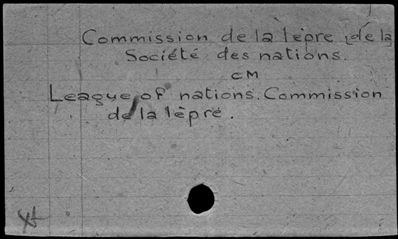 Commission de la lèpre de la
Société des nations.
CM
League of nations. Commission
de la lèpre.